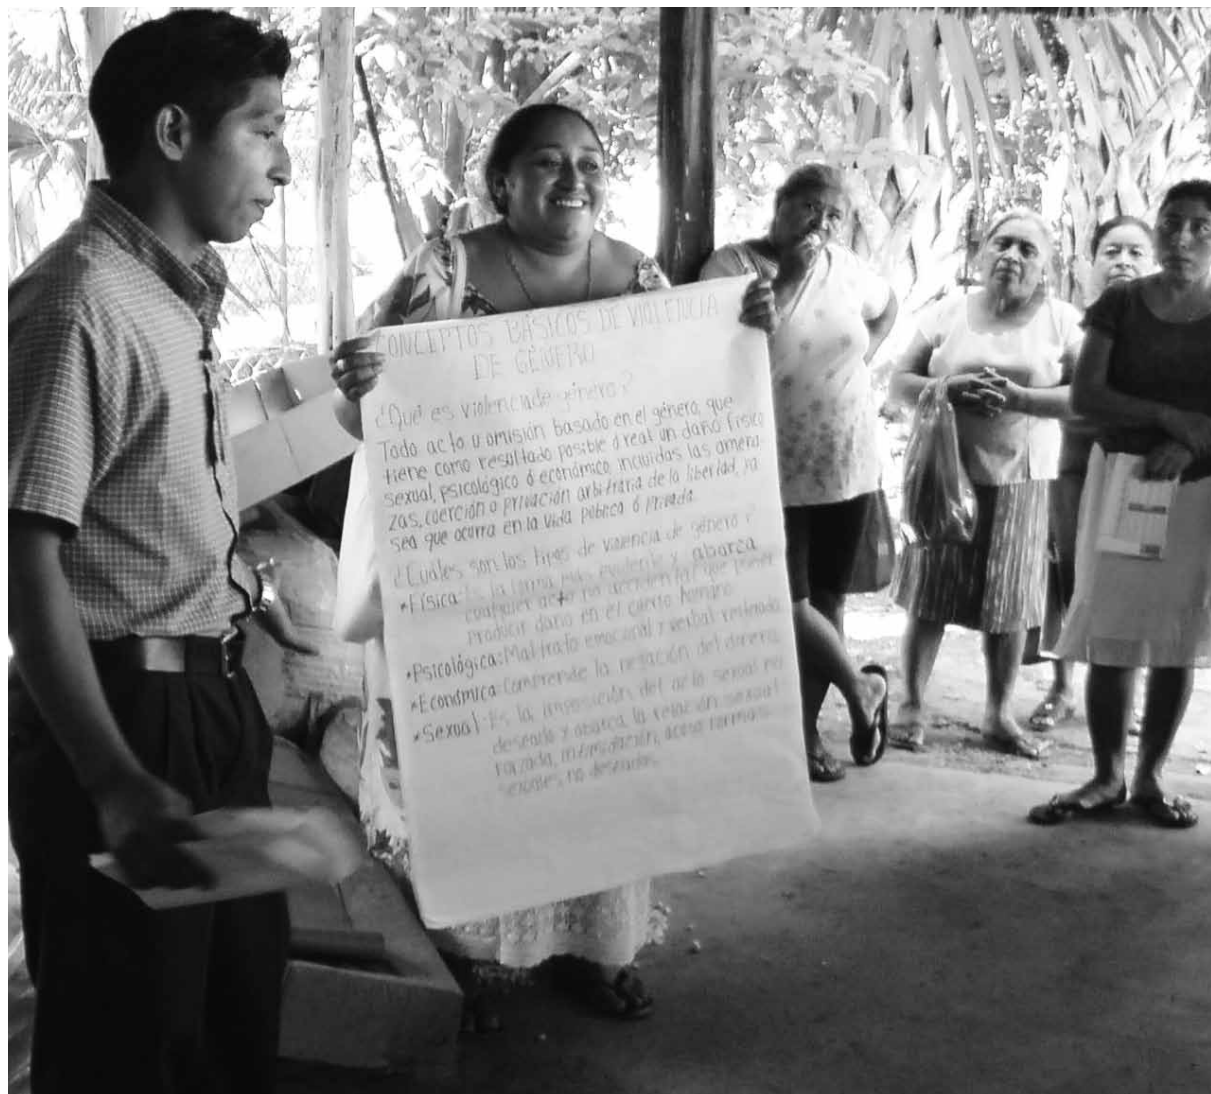 CONCEPTOS BÁSICOS DE VIOLENCIA
DE GÉNERO
¿Qué es violencia de género?
Todo acto u omisión basado en el género, que
tiene como resultado posible ó real un daño físico
sexual, psicológico ó económico incluidas las amena
zas, coerción o privación arbitraria de la libertad, ya
sea que ocurra en la vida pública ó privada.
¿Cuáles son los tipos de violencia de género?
*Física: Es la forma más evidente y abarca
cualquier acto no accidental que
producir daño en el cuerpo humano
*Psicológica: Maltrato emocional y verbal
*Económica: Comprende la negación del dinero.
*Sexual: Es la imposición del acto sexual no
deseado y abarca la relación sexual
forzada, acoso
sexuales, no deseados.